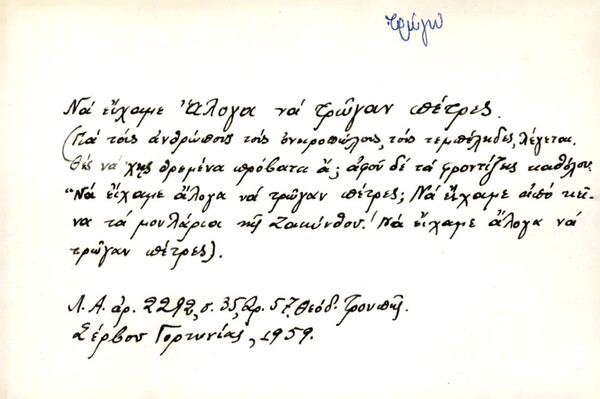 τρώγω
Νά εἴχαμε Ἄλογα νά τρῶγαν πέτρες.
(Γιά τούς ἀνθρώπους τούς ὀνειροπόλους, τούς τεμπέληδες, λέγεται.
Θές νά 'χῃς θρεμένα πρόβατα ἅ; ἀφοῦ δέ τά φροντίζῃς καθόλου.
"Νά εἴχαμε ἄλογα νά τρῶγαν πέτρες; Νά εἴχαμε ἀπό κεῖ-
να τά μουλάρια τῆς Ζακύνθου! Νά εἴχαμε ἄλογα νά
τρῶγαν πέτρες).
Λ.Α. ἀρ. 2292, σ. 35, ἀρ. 57, Θεόδ. Τρουπῆς.
Σέρβου Γορτυνίας, 1959.